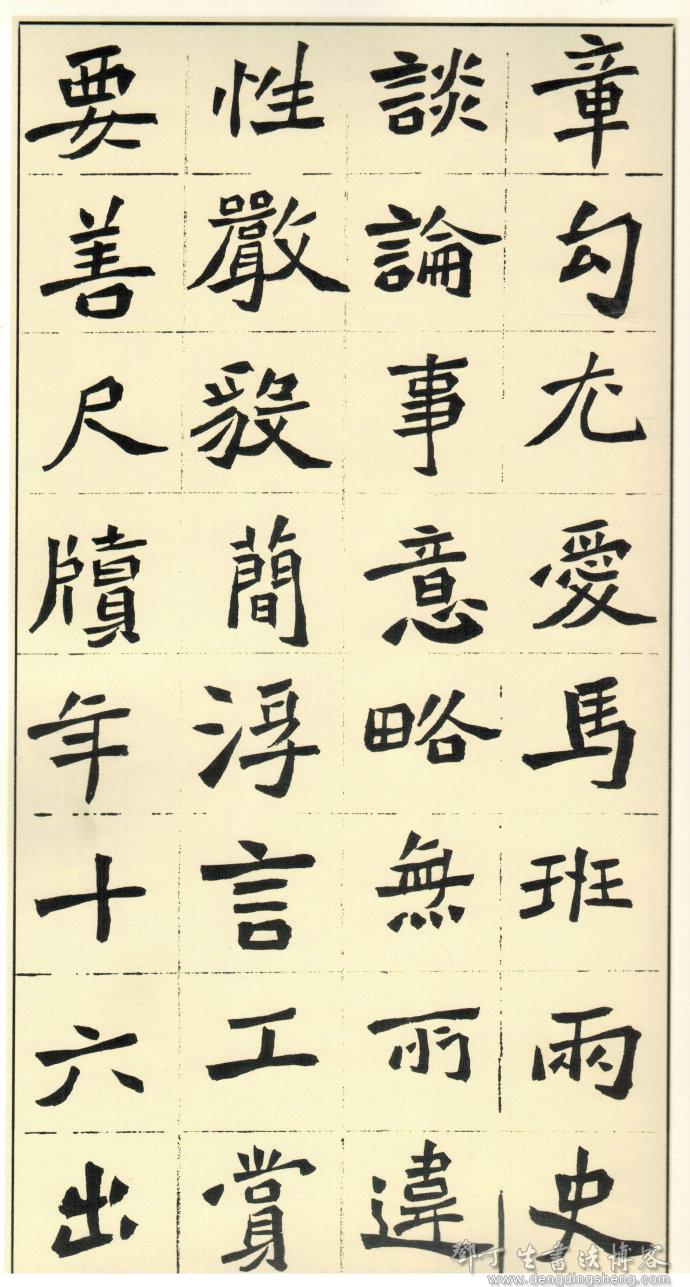 章勾尤愛馬班兩史
談論事意略無所違
性嚴毅簡浮言工賞
要善尺牘年十六出
鄧丁生書法博客
www.dengdingsheng.com